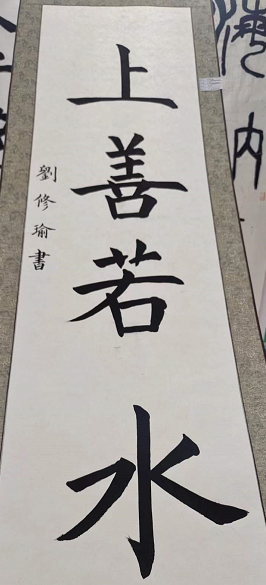 上善若水
劉修瑜書
海內